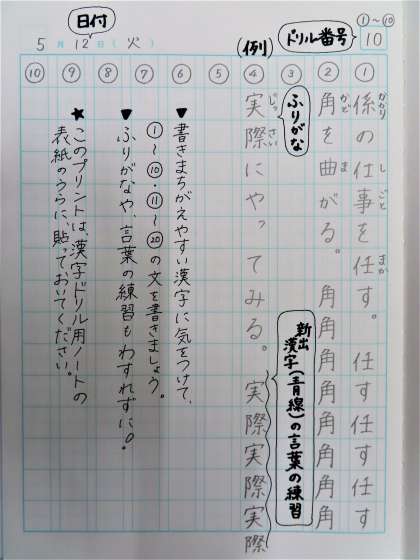 日付
5月12日(火)
(例)
ドリル番号
①〜⑩
10
①
係の仕事を任す。任す任す任す
かかり
しごと
まか
②
角を曲がる。角角角角角角
かど
ま
③
ふりがな
④
実際にやってみる。実際実際実際
じっさい
新出漢字(青線)の言葉の練習
⑤
⑥
▼書きまちがえやすい漢字に気をつけて、
⑦
①〜⑩・⑪〜⑳の文を書きましょう。
⑧
▼ふりがなや、言葉の練習もわすれずに!
⑨
★このプリントは、漢字ドリル用ノートの
⑩
表紙のうらに、貼っておいてください。